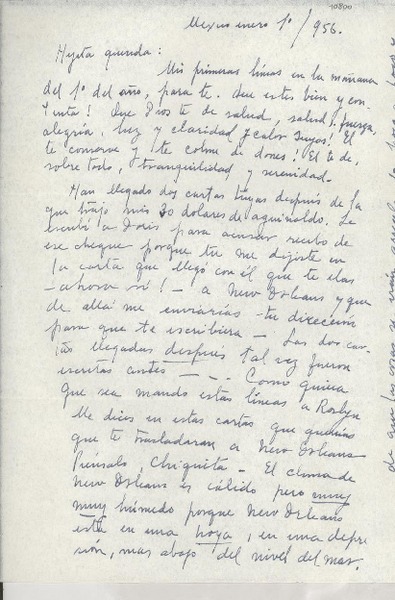 10800
Mexico enero 1º/956.
Hijita querida:
Mis primeras líneas en la mañana
del 1º del año, para ti. Que estés bien y con-
tenta! Que Dios te dé salud, salud, fuerza,
alegría, luz y claridad y calor suyos! El
te conserve y te colme de dones! El te dé,
sobre todo, tranquilidad y serenidad.
Han llegado dos cartas tuyas después de la
que trajo mis 30 dolares de aguinaldo. Le
escribí a Doris para acusar recibo de
ese cheque porque tu me dijiste en
la carta que llegó con él que te ibas
— ahora sí! — a New Orleans y que
de allá me enviarías tu dirección
para que te escribiera — Las dos car-
tas llegadas después tal vez fueron
escritas antes — Como quiera
que sea mando estas líneas a Roslyn
Me dices en estas cartas que querías
que te trasladaran a New Orleans
Piénsalo, Chiquita — El clima de
New Orleans es cálido pero muy
muy húmedo porque New Orleans
está en una hoya, en una depre
sión, mas abajo del nivel del mar.